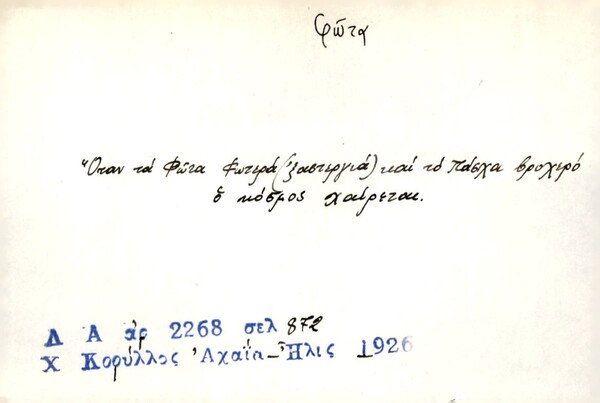 Φῶτα
Ὅταν τά Φῶτα Φωτερά (ξαστεργιά) καί τό Πάσχα βροχερό
ὁ κόσμος χαίρεται.
Λ Α ἀρ 2268 σελ 872
Χ Κορύλλος Ἀχαΐα-Ἦλις 1926